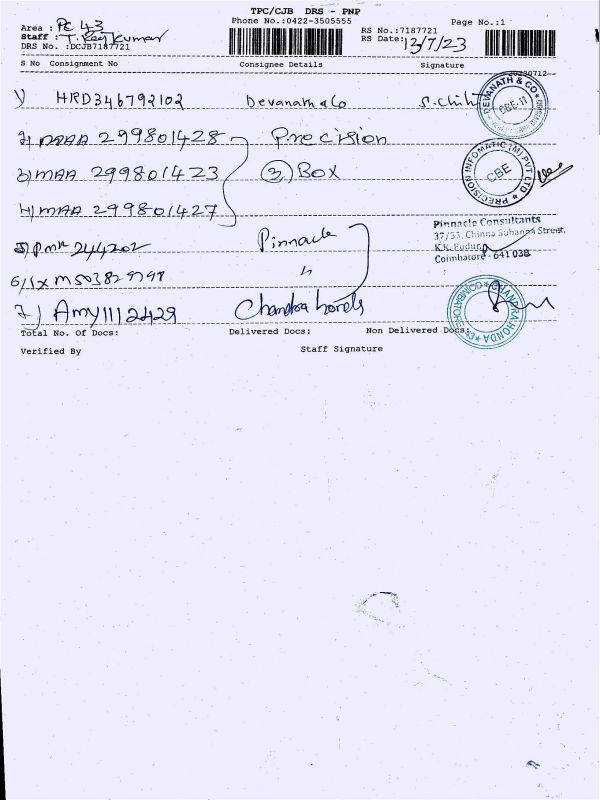 TPC/CJB DRS - PNP
Area : PC 43 Phone No.:0422-3505555 Page No.:1
Staff : T. Raj Kumar RS No.:7187721
DRS No. :DCJB7187721 RS Date: 13/7/23
S No Consignment No Consignee Details Signature
20230712--
1) HRD346792102 Devanath & Co
DEVANATH & CO CBE-11
2) MAA 299801428 Precision
3) MAA 299801423 (3) Box
PRECISION INFOMATIC (M) PVT LTD CBE
4) MAA 299801427
5) PMK 244202 Pinnacle
Pinnacle Consultants
37/33, Chinna Subanna Street,
K.K. Pudur,
Coimbatore - 641 038
6) 〃
7) AMY1112429 Chandra honda
CHANDRA HONDA COIMBATORE
Total No. Of Docs: Delivered Docs: Non Delivered Docs:
Verified By Staff Signature